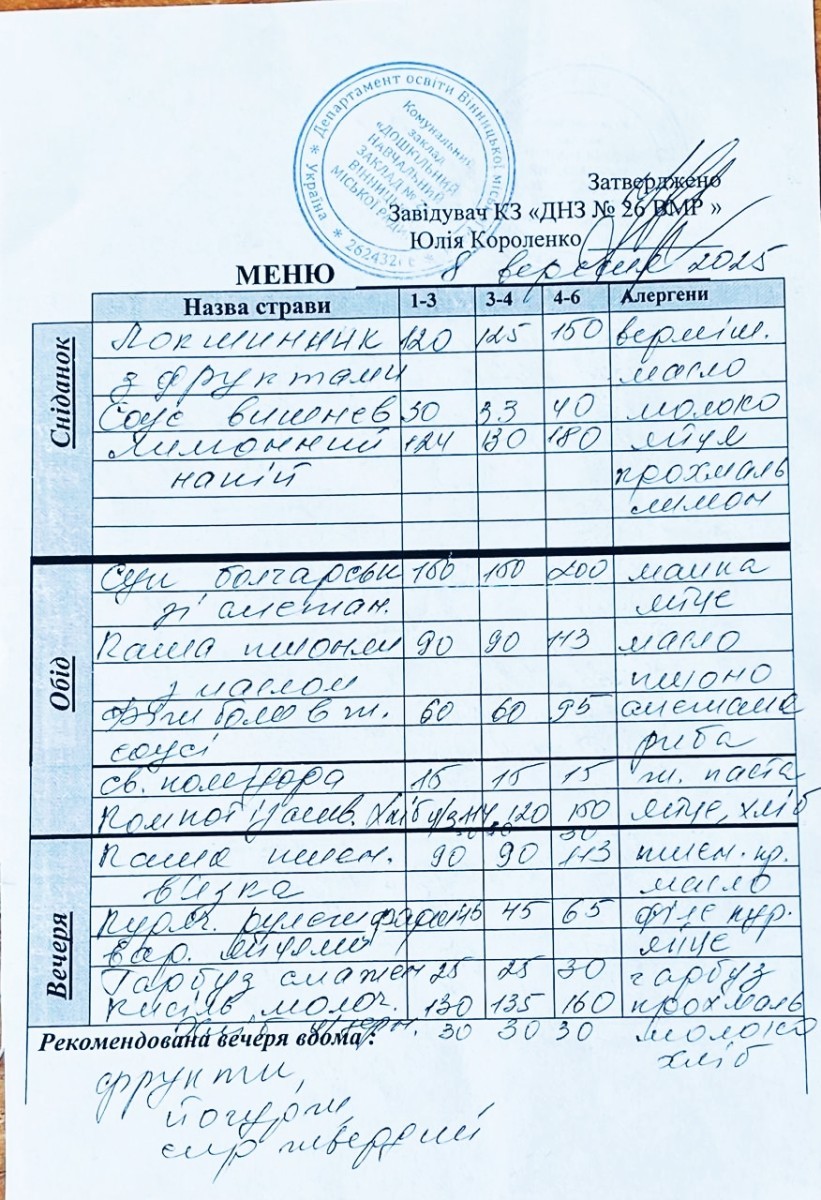 Департамент освіти Вінницької міської
Україна * 262432
Комунальний
заклад
«ДОШКІЛЬНИЙ
НАВЧАЛЬНИЙ
ЗАКЛАД №
МІСЬКОЇ РАДИ
Затверджено
Завідувач КЗ «ДНЗ № 26 ВМР »
Юлія Короленко
МЕНЮ 8 вересня 2025
Назва страви 1-3 3-4 4-6 Алергени
Сніданок
Локшинник 120 125 150 верміш.
з фруктами масло
Соус вишнев 30 33 40 молоко
Лимонний 124 130 180 яйця
напій крохмаль
лимон
Обід
Суп болгарськ 150 150 200 манка
зі сметан. яйце
Каша пшонян 90 90 113 масло
з маслом пшоно
60 60 95 сметана
соусі риба
св. помідора 15 15 15 т. паста
Компот 120 150 яйце, хліб
30
Вечеря
Каша пшен. 90 90 113 пшен. кр.
в'язка масло
Куряч. рулет фарш 45 45 65 філе кур.
вар. яйцями яйце
Гарбуз смажен 25 25 30 гарбуз
Кисіль молоч. 130 135 160 крохмаль
30 30 30 молоко
Рекомендована вечеря вдома :
хліб
фрукти,
йогурти,
сир твердий